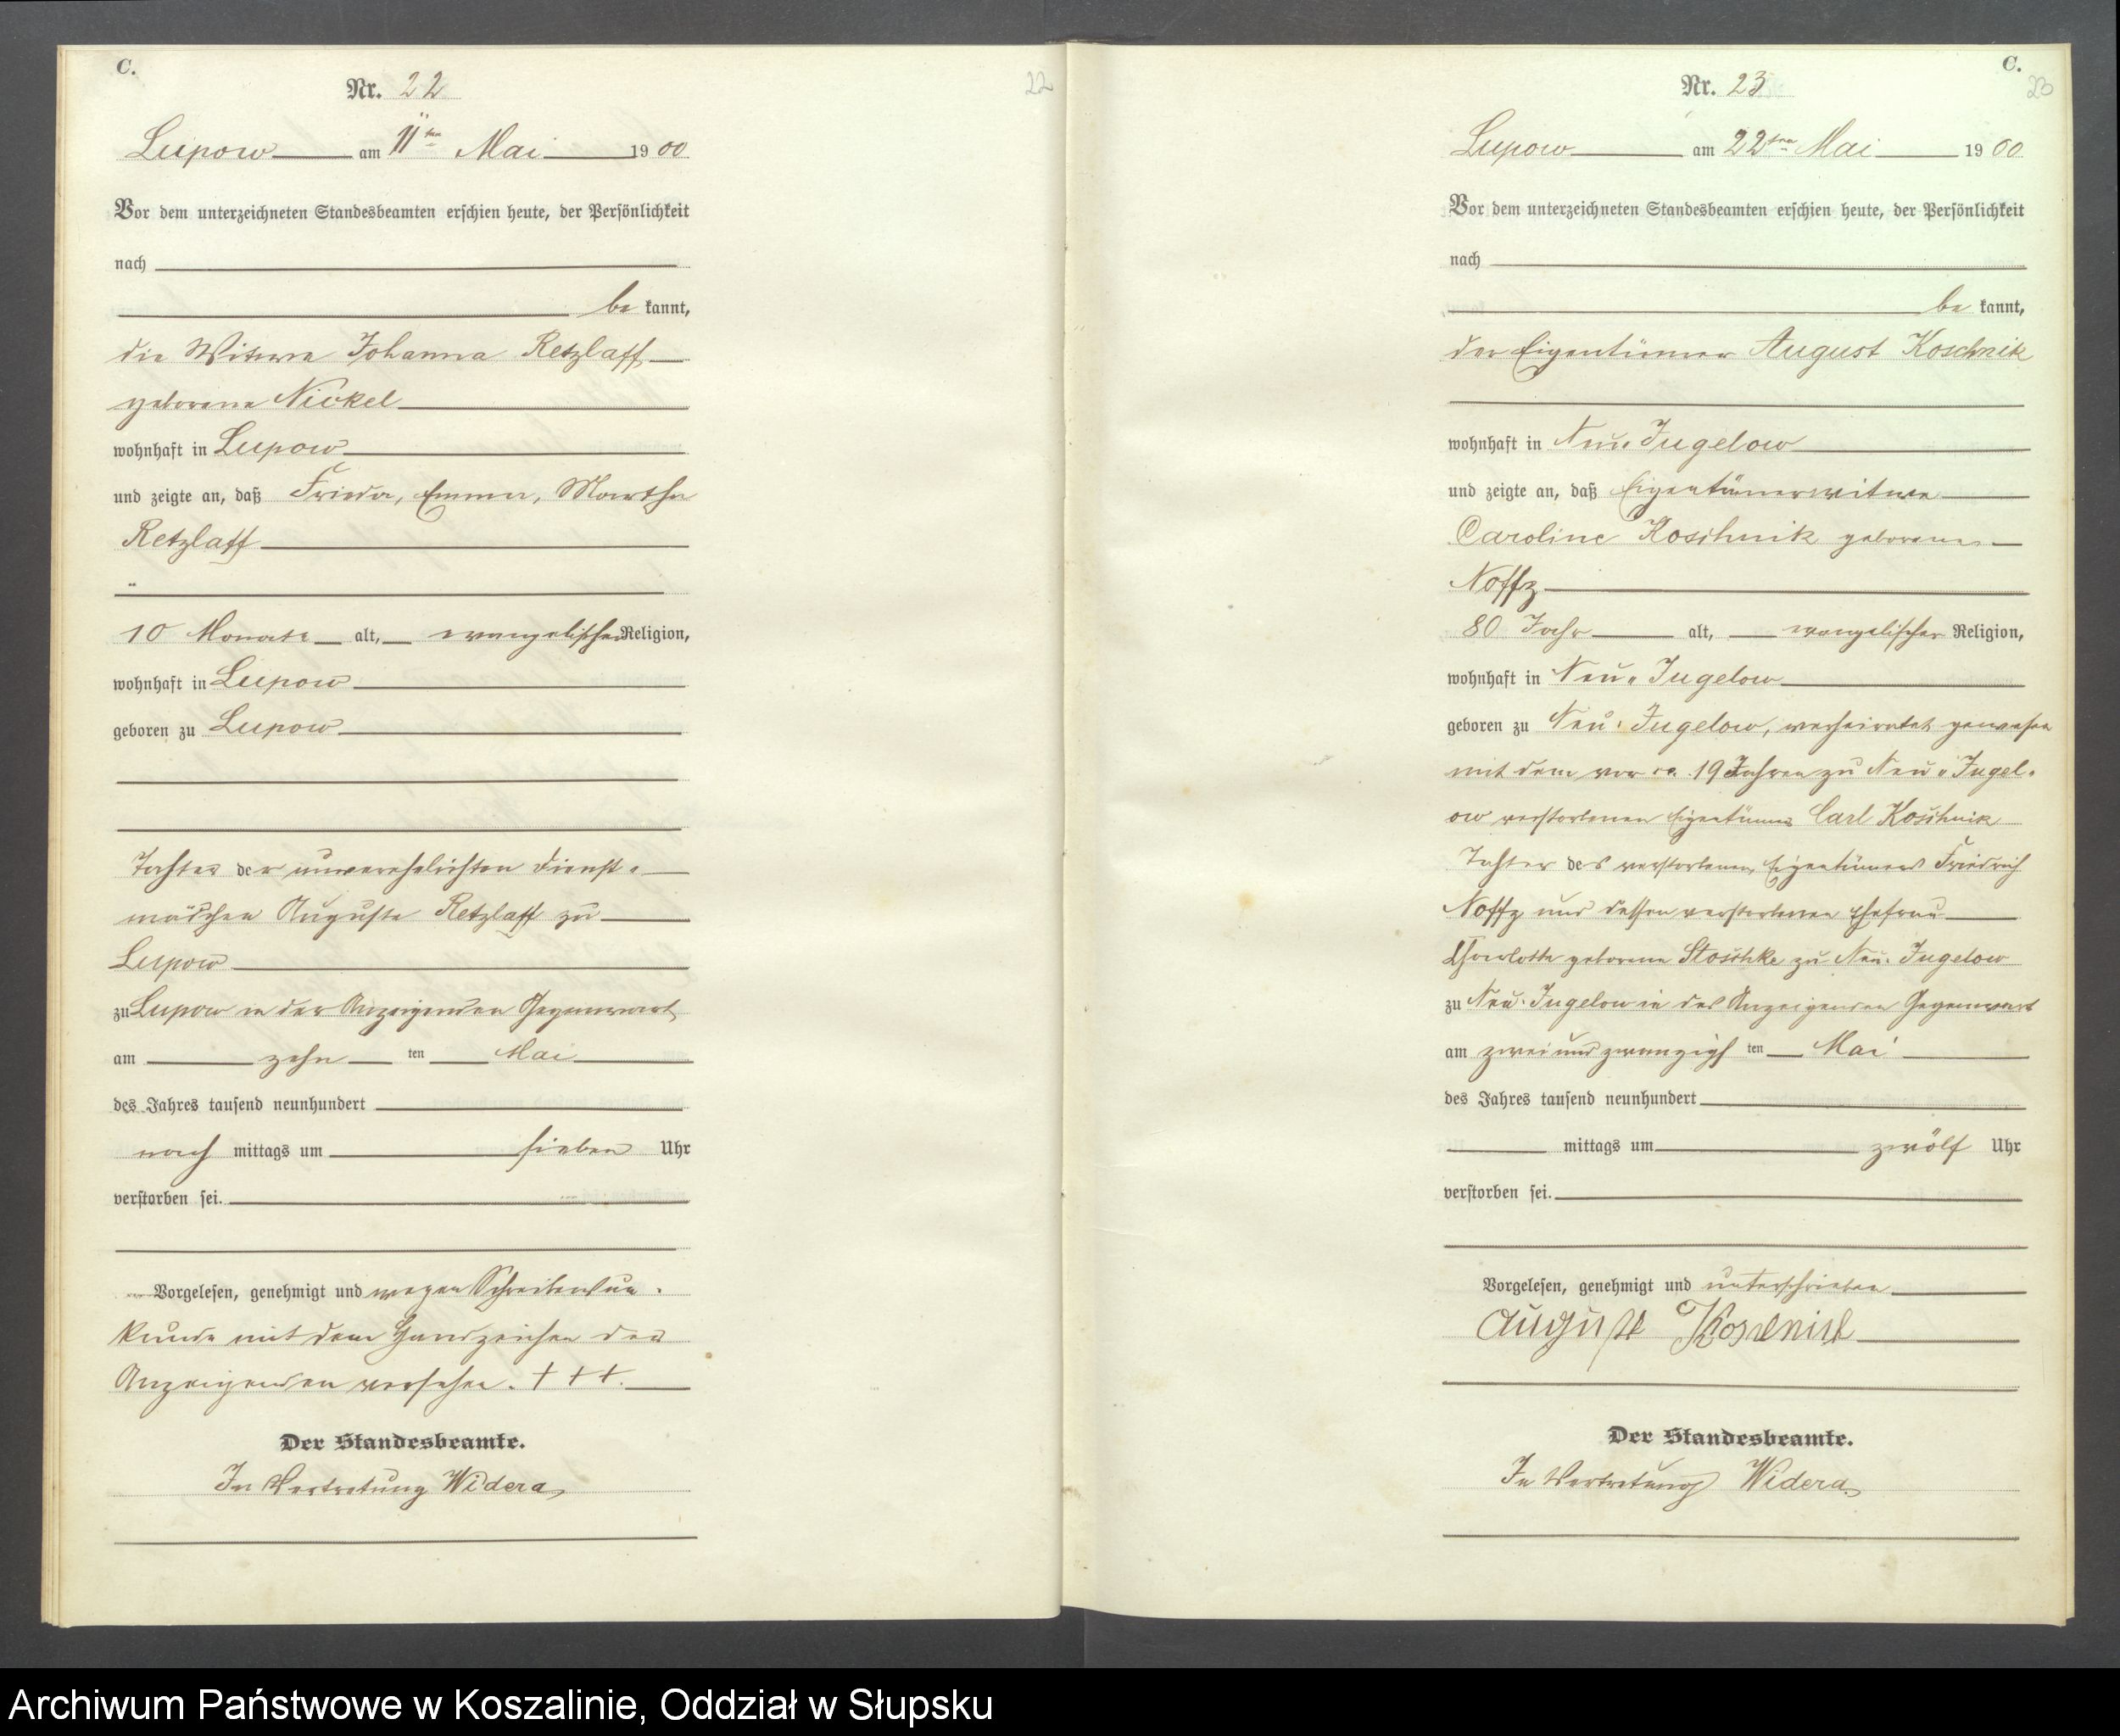 C.
Nr. 22
22
Lupow am 11ten Mai 1900
Vor dem unterzeichneten Standesbeamten erschien heute, der Persönlichkeit
nach
be kannt,
die Witwe Johanna Retzlaff
geborene Nickel
wohnhaft in Lupow
und zeigte an, daß Frieda, Emma, Martha
Retzlaff
10 Monate alt, evangelischer Religion,
wohnhaft in Lupow
geboren zu Lupow
Tochter der unverehelichten Dienst-
mädchen Auguste Retzlaff zu
Lupow
zu Lupow in der Anzeigenden Gegenwart
am zehn ten Mai
des Jahres tausend neunhundert
nach mittags um sieben Uhr
verstorben sei.
Vorgelesen, genehmigt und wegen Schreibensun-
kunde mit dem Handzeichen der
Anzeigenden versehen. +++.
Der Standesbeamte.
In Vertretung Widera
C.
Nr. 23
23
Lupow am 22ten Mai 1900
Vor dem unterzeichneten Standesbeamten erschien heute, der Persönlichkeit
nach
be kannt,
der Eigentümer August Koschnik
wohnhaft in Neu-Jugelow
und zeigte an, daß Eigentümerwitwe
Caroline Koschnik geborene
Noffz
80 Jahr alt, evangelischer Religion,
wohnhaft in Neu-Jugelow
geboren zu Neu-Jugelow, verheiratet gewesen
mit dem vor ca. 19 Jahren zu Neu-Jugel-
ow verstorbenen Eigentümer Carl Koschnik
Tochter des verstorbenen Eigentümers Friedrich
Noffz und dessen verstorbenen Ehefrau
Charlotte geborene Stoschke zu Neu-Jugelow
zu Neu-Jugelow in des Anzeigenden Gegenwart
am zweiundzwanzigs ten Mai
des Jahres tausend neunhundert
mittags um zwölf Uhr
verstorben sei.
Vorgelesen, genehmigt und unterschrieben
August Koschnik
Der Standesbeamte.
In Vertretung Widera
Archiwum Państwowe w Koszalinie, Oddział w Słupsku